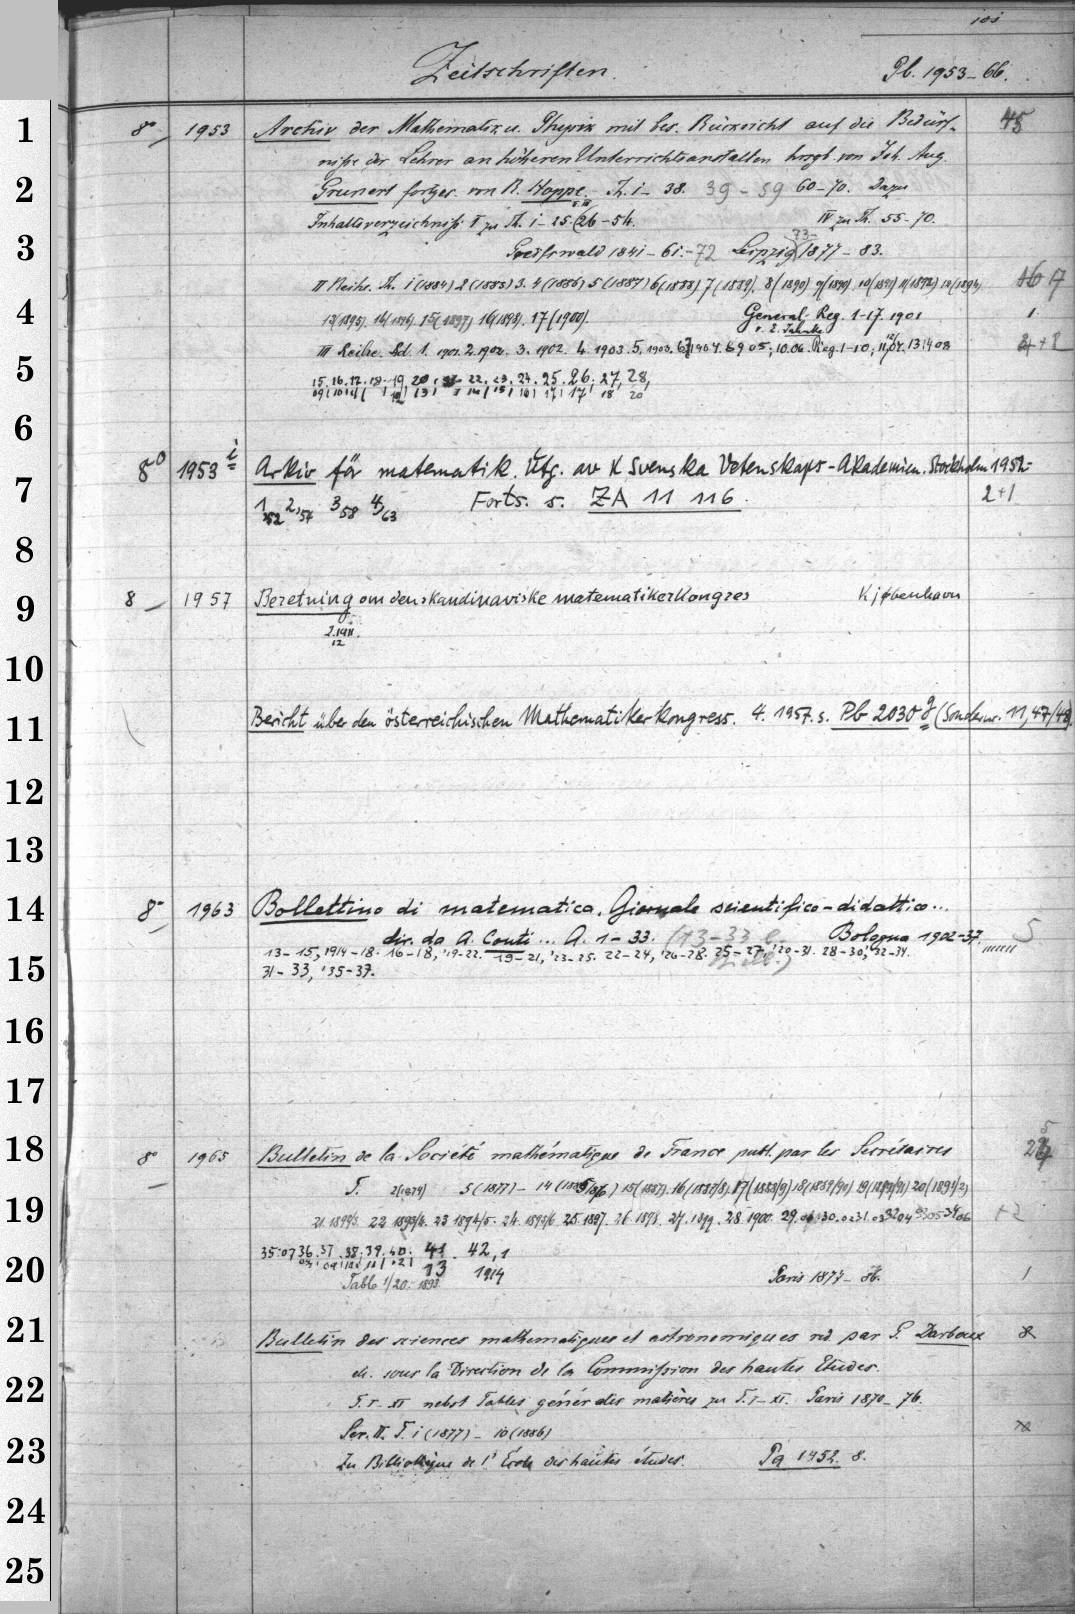 101
Zeitschriften. Pb. 1953-66.
1 8° 1953 Archiv der Mathematik u. Physik mit bes. Rücksicht auf die Bedürf- 45
nisse der Lehrer an höheren Unterrichtsanstalten hrsgb. von Joh. Aug.
2 Grunert fortges. von R. Hoppe. Th. 1- 38. 39-59 60-70. Dazu
Inhaltsverzeichniss I zu Th. 1-25. 26-54. IV zu Th. 55-70.
3 Greifswald 1841-61.-72 Leipzig 73- 1877-83.
II Reihe. Th. 1 (1884) 2 (1885) 3. 4 (1886) 5 (1887) 6 (1888) 7 (1889). 8 (1890) 9 (1890). 10 (1891) 11 (1892) 12 (1894) 16 17
4 13 (1895). 14 (1896). 15 (1897) 16 (1898). 17 (1900). General-Reg. 1-17. 1901 1
v. E. Jahnke
III Reihe. Bd. 1. 1901. 2. 1902. 3. 1902. 4. 1903. 5. 1903. 10.06. Reg. 1-10, 13 1408
5 15. 16. 17. 18. 19 20. 22. 23. 24. 25. 26. 27, 28,
6
7 8° 1953 i Arkiv för matematik. Utg. av K Svenska Vetenskaps-Akademien. Stockholm 1952-
1 52 2, 54 3 58 4 63 Forts. s. ZA 11 116. 2+1
8
9 8 1957 Beretning om den skandinaviske matematikerkongres Kjøbenhavn
2. 1911.
12
10
11 Bericht über den österreichischen Mathematikerkongress. 4. 1957. s. Pb 2030 g (Sondernr. 11, 47/48).
12
13
14 8° 1963 Bollettino di matematica. Giornale scientifico-didattico...
dir. da A. Conti ... A. 1-33. (13-33 Bologna 1902-37. 5
15 13-15, 1914-18. 16-18, '19-22. 19-21, '23-25. 22-24, '26-28. 25-27, '20-31. 28-30, '32-34.
31-33, '35-37.
16
17
18 8° 1965 Bulletin de la Société mathématique de France publ. par les Secrétaires
T. 2 (1874) 5 (1877)- 14 15 (1887). 16 (1887/8). 17 (1888/9) 18 (1889/90) 19 (1890/91) 20 (1891/2)
19 22 1893/4. 23 1894/5. 24. 1895/6. 25. 1897. 26 1898. 27. 1899. 28. 1900. 29. 30. 02 31. 03 32 04 33 05 34 06 +2
35. 07 36. 37. 38. 39. 40. 41. 42, 1
20 13 1914
Table 1/20. 1893. Paris 1877-86. 1
21 Bulletin des sciences mathematiques et astronomiques red. par G. Darboux 8
etc. sous la Direction de la Commission des hautes Etudes.
22 T. I-XI nebst Tables génér. des matières zu T. I-XI. Paris 1870-76.
Ser. II. T. 1 (1877)- 10 (1886)
23 Zu Bibliothèque de l'École des hautes études. Pa 1452. 8.
24
25